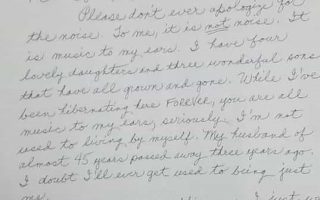 Please don't ever apologize for
the noise. To me, it is not noise. It
is music to my ears. I have four
lovely daughters and three wonderful sons
that have all grown and gone. While I've
been hibernating here Forever, you are all
music to my ears, seriously. I'm not
used to living by myself. My husband of
almost 45 years passed away three years ago.
I doubt I'll ever get used to being just
me.
I just